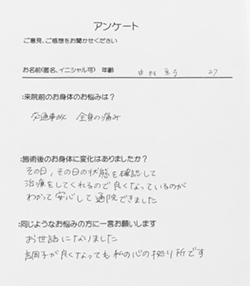 アンケート
ご意見、ご感想をお聞かせください
お名前(匿名、イニシャル可) 年齢 27
:来院前のお身体のお悩みは?
交通事故 全身の痛み
:施術後のお身体に変化はありましたか?
その日、その日の状態を確認して
治療をしてくれるので良くなっているのが
わかって安心して通院できました
:同じようなお悩みの方に一言お願いします
お世話になりました
調子が良くなっても私の心の拠り所です